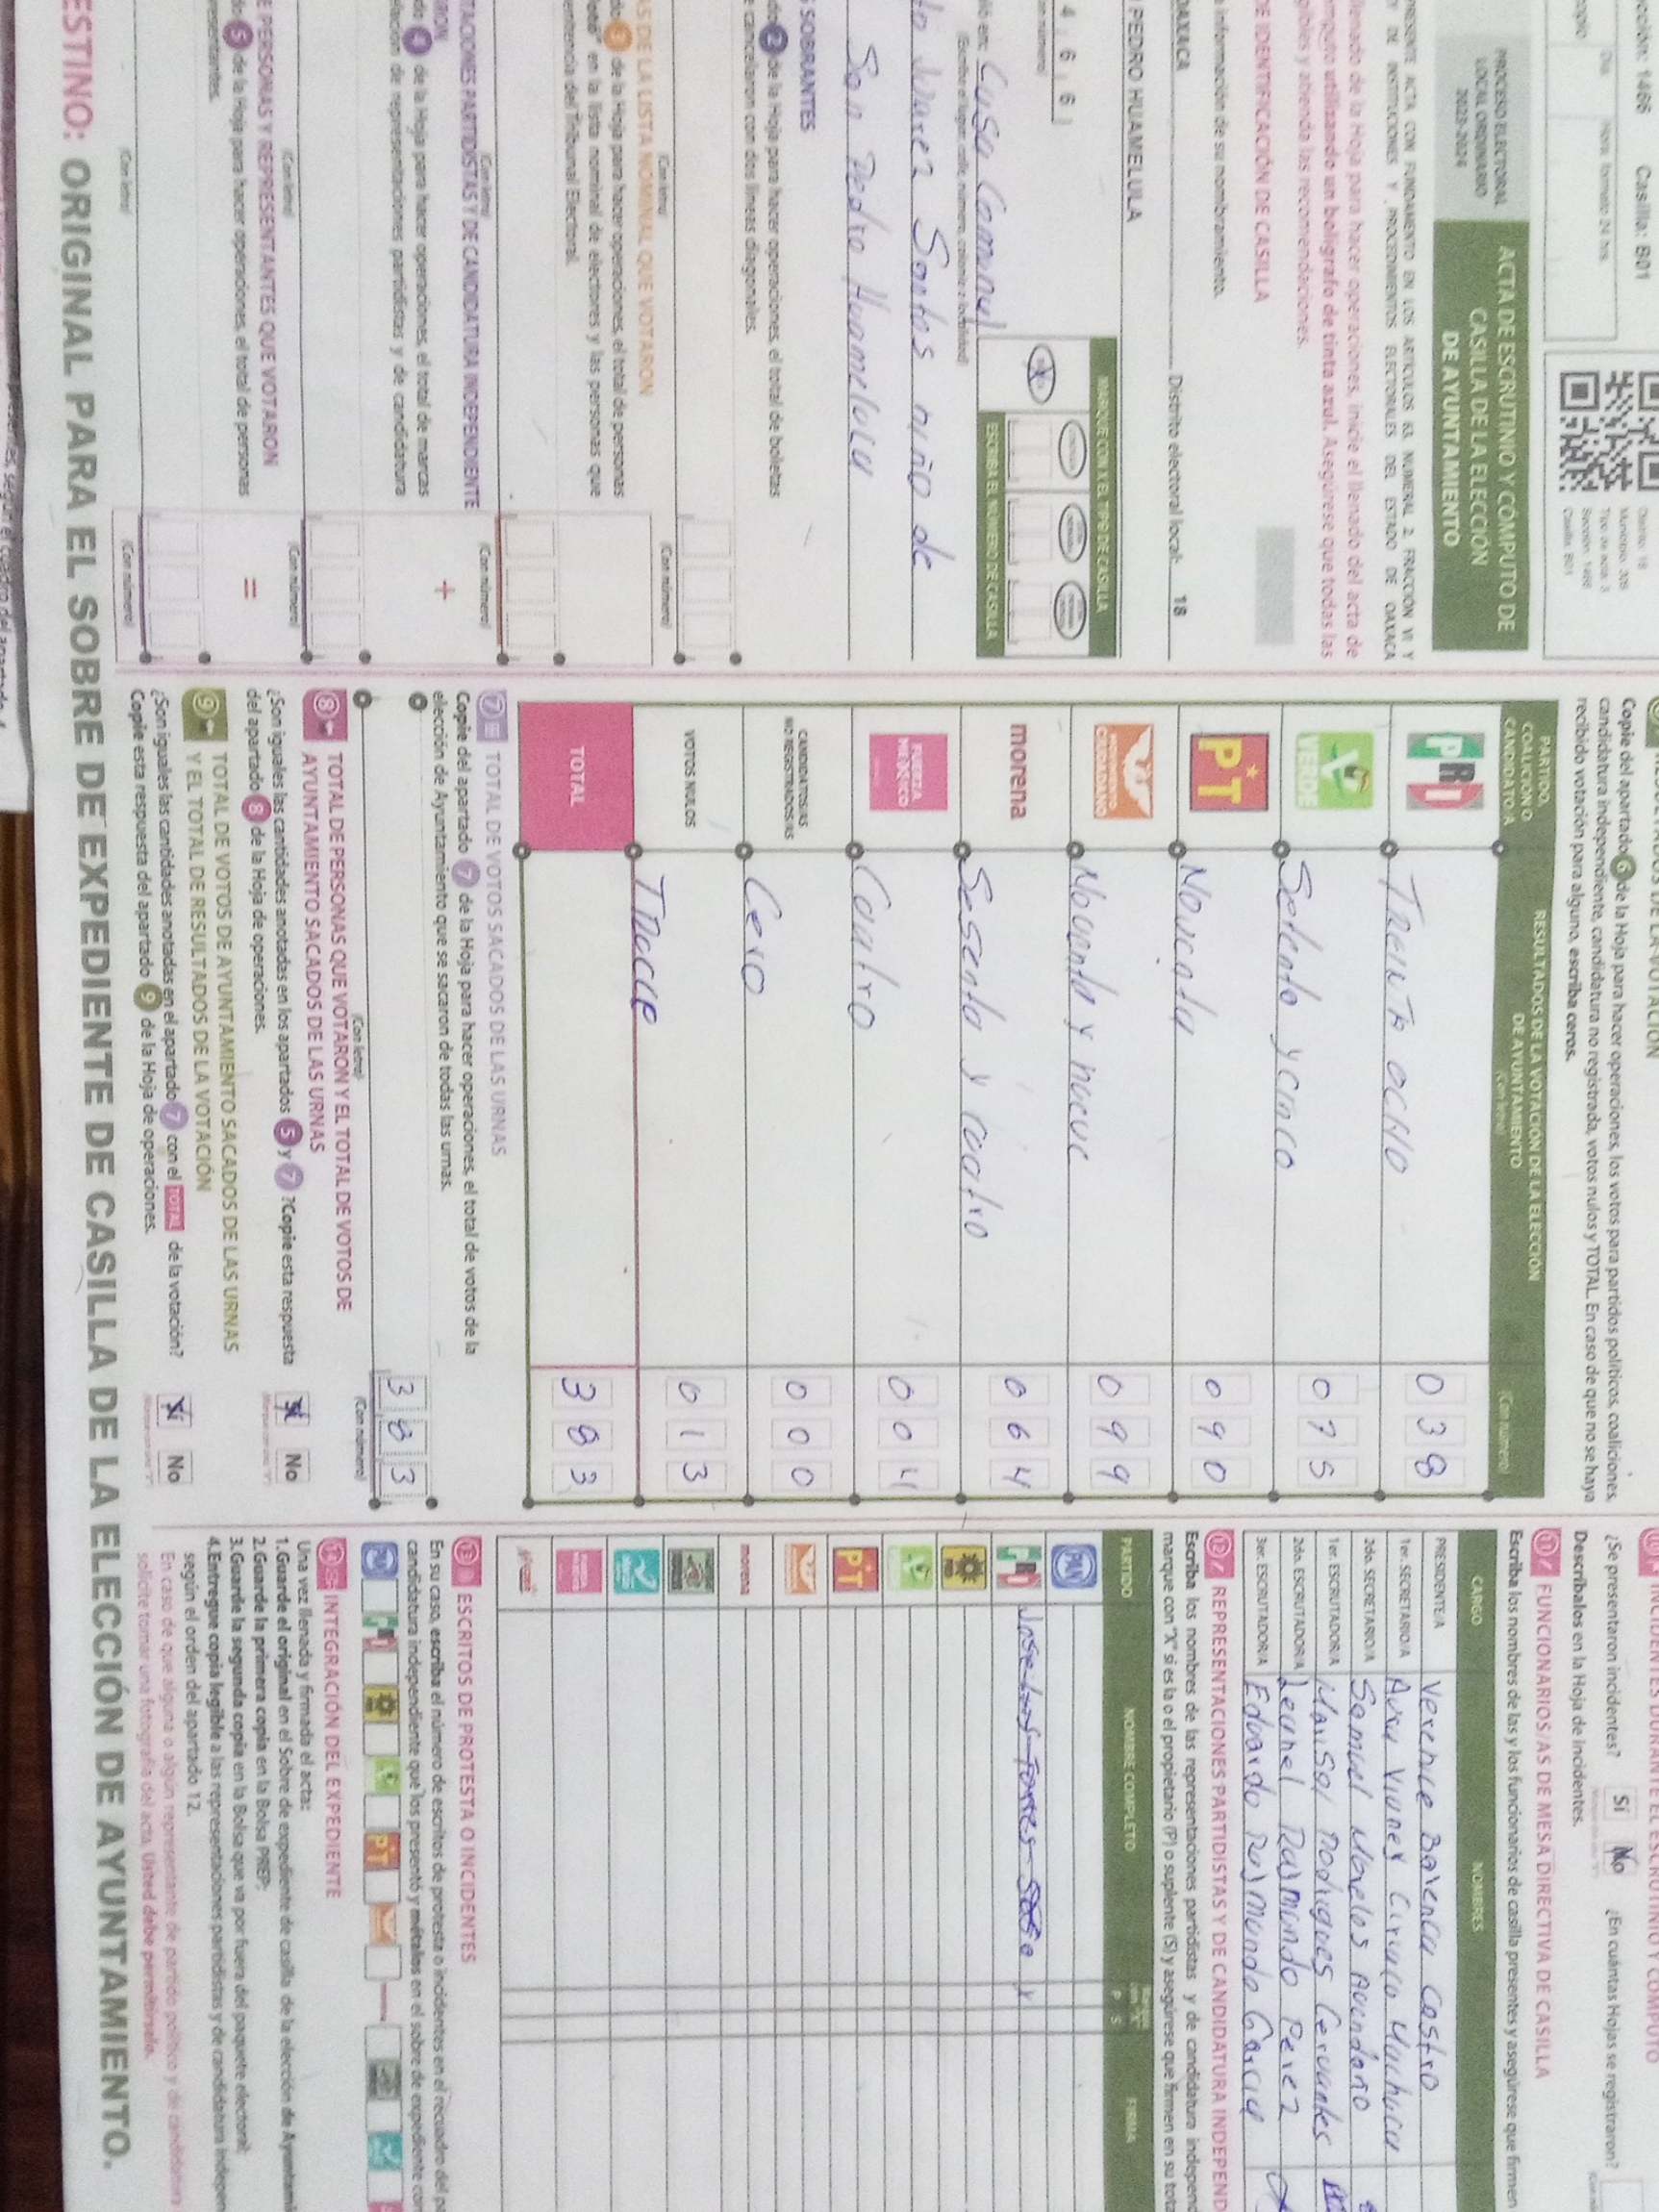 cción: 1466 Casilla: B01
Día Hora: formato 24 hrs.
PROCESO ELECTORAL
LOCAL ORDINARIO
2023-2024
ACTA DE ESCRUTINIO Y CÓMPUTO DE
CASILLA DE LA ELECCIÓN
DE AYUNTAMIENTO
PRESENTE ACTA CON FUNDAMENTO EN LOS ARTÍCULOS 63, NUMERAL 2, FRACCIÓN VI Y
Y DE INSTITUCIONES Y PROCEDIMIENTOS ELECTORALES DEL ESTADO DE OAXACA
llenado de la Hoja para hacer operaciones, inicie el llenado del acta de
mputo utilizando un bolígrafo de tinta azul. Asegúrese que todas las
gibles y atienda las recomendaciones.
DE IDENTIFICACIÓN DE CASILLA
a información de su nombramiento.
OAXACA Distrito electoral local: 18
PEDRO HUAMELULA
4 6 6
(Con número)
MARQUE CON X EL TIPO DE CASILLA
ESCRIBA EL NÚMERO DE CASILLA
ló en: Casa Comunal
(Escriba el lugar, calle, número, colonia o localidad)
to Juarez Santos niño de
San Pedro Huamelula
S SOBRANTES
do 2 de la Hoja para hacer operaciones, el total de boletas
e cancelaron con dos líneas diagonales.
(Con letra) (Con número)
AS DE LA LISTA NOMINAL QUE VOTARON
do 3 de la Hoja para hacer operaciones, el total de personas
otó" en la lista nominal de electores y las personas que
entencia del Tribunal Electoral.
(Con letra) (Con número)
TACIONES PARTIDISTAS Y DE CANDIDATURA INDEPENDIENTE
RON
do 4 de la Hoja para hacer operaciones, el total de marcas
elación de representaciones partidistas y de candidatura
+
(Con letra) (Con número)
E PERSONAS Y REPRESENTANTES QUE VOTARON
do 5 de la Hoja para hacer operaciones, el total de personas
resentantes.
=
(Con letra) (Con número)
Copie del apartado 6 de la Hoja para hacer operaciones, los votos para partidos políticos, coaliciones,
candidatura independiente, candidatura no registrada, votos nulos y TOTAL. En caso de que no se haya
recibido votación para alguno, escriba ceros.
PARTIDO,
COALICIÓN O
CANDIDATO/A
RESULTADOS DE LA VOTACIÓN DE LA ELECCIÓN
DE AYUNTAMIENTO
(Con letra) (Con número)
PRI TREINTA OCHO 0 3 8
VERDE Setenta y cinco 0 7 5
PT Noventa 0 9 0
MOVIMIENTO CIUDADANO Noventa y nueve 0 9 9
morena Sesenta y cuatro 0 6 4
FUERZA MÉXICO Cuatro 0 0 4
CANDIDATOS/AS
NO REGISTRADOS/AS Cero 0 0 0
VOTOS NULOS Trece 0 1 3
TOTAL 3 8 3
7 TOTAL DE VOTOS SACADOS DE LAS URNAS
Copie del apartado 7 de la Hoja para hacer operaciones, el total de votos de la
elección de Ayuntamiento que se sacaron de todas las urnas.
3 8 3
(Con letra) (Con número)
8 TOTAL DE PERSONAS QUE VOTARON Y EL TOTAL DE VOTOS DE
AYUNTAMIENTO SACADOS DE LAS URNAS
¿Son iguales las cantidades anotadas en los apartados 5 y 7 ? Copie esta respuesta
del apartado 8 de la Hoja de operaciones.
Sí No
9 TOTAL DE VOTOS DE AYUNTAMIENTO SACADOS DE LAS URNAS
Y EL TOTAL DE RESULTADOS DE LA VOTACIÓN
¿Son iguales las cantidades anotadas en el apartado 7 con el TOTAL de la votación?
Copie esta respuesta del apartado 9 de la Hoja de operaciones.
Sí No
INCIDENTES DURANTE EL ESCRUTINIO Y CÓMPUTO
¿Se presentaron incidentes? Sí No ¿En cuántas Hojas se registraron?
Descríbalos en la Hoja de incidentes.
11 FUNCIONARIOS/AS DE MESA DIRECTIVA DE CASILLA
Escriba los nombres de las y los funcionarios de casilla presentes y asegúrese que firmen
CARGO NOMBRES
PRESIDENTE/A Verenice Balencia Castro
1er. SECRETARIO/A
2do. SECRETARIO/A
1er. ESCRUTADOR/A Marisol Rodrigues Cervantes
2do. ESCRUTADOR/A Leonel Raymundo Perez
3er. ESCRUTADOR/A Eduardo Raymundo Garcia
12 REPRESENTACIONES PARTIDISTAS Y DE CANDIDATURA INDEPEND
Escriba los nombres de las representaciones partidistas y de candidatura independ
marque con "X" si es la o el propietario (P) o suplente (S) y asegúrese que firmen en su tota
PARTIDO NOMBRE COMPLETO P S FIRMA
PAN
PRI
PT
morena
13 ESCRITOS DE PROTESTA O INCIDENTES
En su caso, escriba el número de escritos de protesta o incidentes en el recuadro del pa
candidatura independiente que los presentó y métalos en el sobre de expediente cor
14 INTEGRACIÓN DEL EXPEDIENTE
Una vez llenada y firmada el acta:
1.Guarde el original en el Sobre de expediente de casilla de la elección de Ayuntami
2.Guarde la primera copia en la Bolsa PREP;
3.Guarde la segunda copia en la Bolsa que va por fuera del paquete electoral;
4.Entregue copia legible a las representaciones partidistas y de candidatura indepen
según el orden del apartado 12.
En caso de que alguna o algún representante de partido político y de candidatura
solicite tomar una fotografía del acta. Usted debe permitírselo.
ESTINO: ORIGINAL PARA EL SOBRE DE EXPEDIENTE DE CASILLA DE LA ELECCIÓN DE AYUNTAMIENTO.